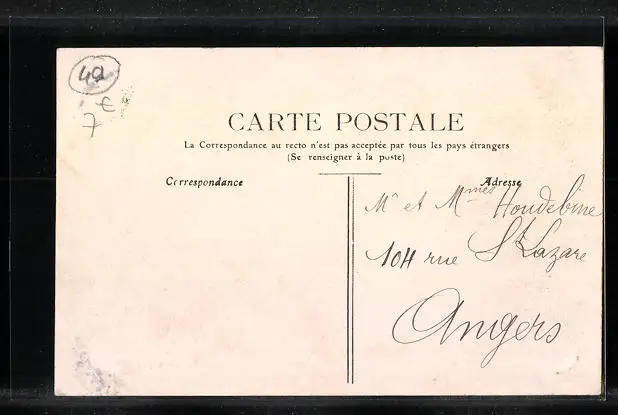 49
7 €
CARTE POSTALE
La Correspondance au recto n'est pas acceptée par tous les pays étrangers
(Se renseigner à la poste)
Correspondance
Adresse
Mr et Mmes Houdebine
104 rue St Lazare
Angers